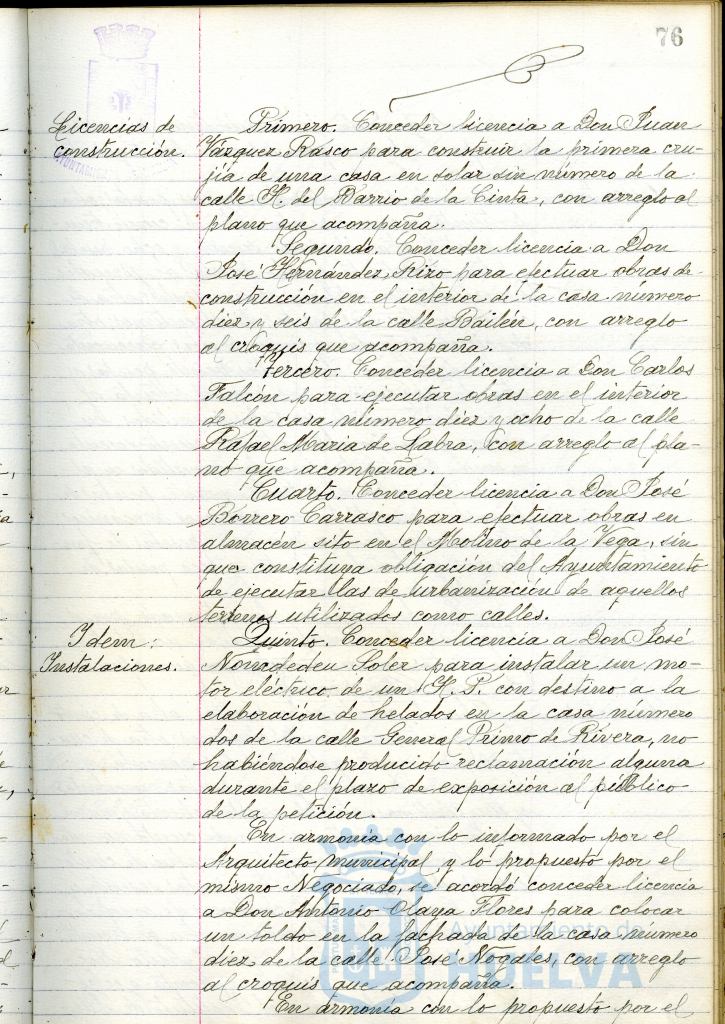 76
Licencias de
construcción.
Primero. Conceder licencia a Don Juan
Vázquez Rasco para construir la primera cru-
jía de una casa en solar sin número de la
calle H. del Barrio de la Cinta, con arreglo al
plano que acompaña.
Segundo. Conceder licencia a Don
José Hernández Rizo para efectuar obras de
construcción en el interior de la casa número
diez y seis de la calle Bailén, con arreglo
al croquis que acompaña.
Tercero. Conceder licencia a Don Carlos
Falcón para ejecutar obras en el interior
de la casa número diez y ocho de la calle
Rafael María de Labra, con arreglo al pla-
no que acompaña.
Cuarto. Conceder licencia a Don José
Borrero Carrasco para efectuar obras en
almacén sito en el Molino de la Vega, sin
que constituya obligación del Ayuntamiento
de ejecutar las de urbanización de aquellos
terrenos utilizados como calles.
Idem:
Instalaciones.
Quinto. Conceder licencia a Don José
Noncdedeu Soler para instalar un mo-
tor eléctrico de un H. P. con destino a la
elaboración de helados en la casa número
dos de la calle General Primo de Rivera, no
habiéndose producido reclamación alguna
durante el plazo de exposición al público
de la petición.
En armonía con lo informado por el
Arquitecto municipal y lo propuesto por el
mismo Negociado, se acordó conceder licencia
a Don Antonio Olaya Flores para colocar
un toldo en la fachada de la casa número
diez de la calle José Nogales, con arreglo
al croquis que acompaña.
En armonía con lo propuesto por el
Ayuntamiento de
HUELVA